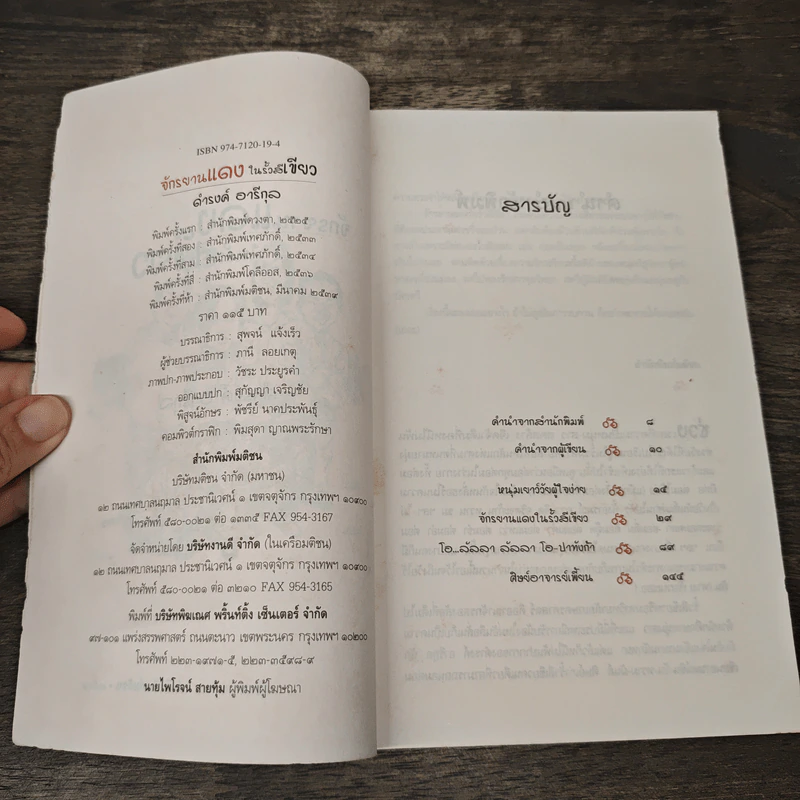 ISBN 974-7120-19-4
จักรยานแดง ในรั้วสีเขียว
ดำรงค์ อารีกุล
พิมพ์ครั้งแรก : สำนักพิมพ์ดวงตา, ๒๕๒๕
พิมพ์ครั้งที่สอง : สำนักพิมพ์เทศภักดิ์, ๒๕๓๓
พิมพ์ครั้งที่สาม : สำนักพิมพ์เทศภักดิ์, ๒๕๓๔
พิมพ์ครั้งที่สี่ : สำนักพิมพ์โคลีออส, ๒๕๓๖
พิมพ์ครั้งที่ห้า : สำนักพิมพ์มติชน, มีนาคม ๒๕๓๙
ราคา ๑๑๕ บาท
บรรณาธิการ : สุพจน์ แจ้งเร็ว
ผู้ช่วยบรรณาธิการ : ภานี ลอยเกตุ
ภาพปก-ภาพประกอบ : วัชระ ประยูรคำ
ออกแบบปก : สุกัญญา เจริญชัย
พิสูจน์อักษร : พัชรีย์ นาคประพันธุ์
คอมพิวต์กราฟิก : พิมสุดา ญาณพระรักษา
สำนักพิมพ์มติชน
บริษัทมติชน จำกัด (มหาชน)
๑๒ ถนนเทศบาลนฤมาล ประชานิเวศน์ ๑ เขตจตุจักร กรุงเทพฯ ๑๐๙๐๐
โทรศัพท์ ๕๘๐-๐๐๒๑ ต่อ ๑๓๓๕ FAX 954-3167
จัดจำหน่ายโดย บริษัทงานดี จำกัด (ในเครือมติชน)
๑๒ ถนนเทศบาลนฤมาล ประชานิเวศน์ ๑ เขตจตุจักร กรุงเทพฯ ๑๐๙๐๐
โทรศัพท์ ๕๘๐-๐๐๒๑ ต่อ ๓๒๑๐ FAX 954-3165
พิมพ์ที่ บริษัทพิฆเณศ พริ้นท์ติ้ง เซ็นเตอร์ จำกัด
๙๗-๑๐๑ แพร่งสรรพศาสตร์ ถนนตะนาว เขตพระนคร กรุงเทพฯ ๑๐๒๐๐
โทรศัพท์ ๒๒๓-๑๙๗๑-๕, ๒๒๓-๓๕๙๘-๙
นายไพโรจน์ สายทุ้ม ผู้พิมพ์ผู้โฆษณา
สารบัญ
คำนำจากสำนักพิมพ์ ๘
คำนำจากผู้เขียน ๑๐
หนุ่มเยาว์วัยผู้ใจง่าย ๑๕
จักรยานแดงในรั้วสีเขียว ๒๙
โอ...ลัลลา ลัลลา โอ-ปาทังก้า ๘๙
ศิษย์อาจารย์เพี้ยน ๑๔๕